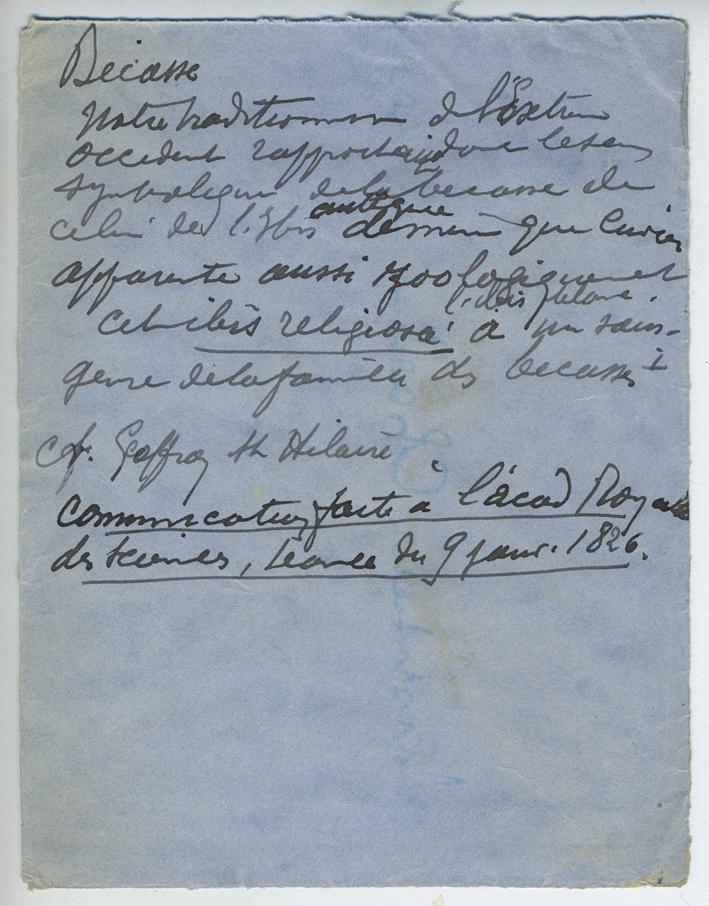 Bécasse
Notre tradition de l'Extrême
occident rapportait donc le sens
symbolique de la bécasse de
celui de l'Ibis antique de même que Cuvier
apparente aussi zoologiquement
l'ibis
cet ibis religiosa à un sous-
genre de la famille des bécasses 1
cf. Geffroy St Hilaire
communication faite à l'acad Royale
des sciences, séance du 9 janv. 1826.